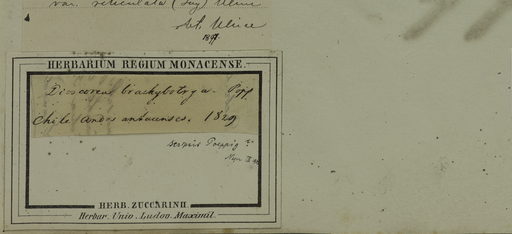 var. reticulata (Gay) Uline
det. Uline
1897.
HERBARIUM REGIUM MONACENSE.
Dioscorea brachybotrya. Pöpp.
Chile andes antucenses. 1829
scripsit Poeppig
HERB. ZUCCARINII
Herbar. Univ. Ludov. Maximil.